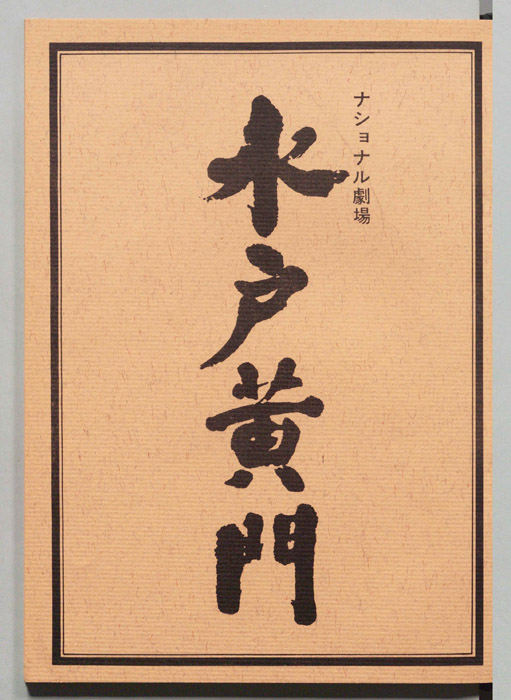 ナショナル劇場
水戸黄門